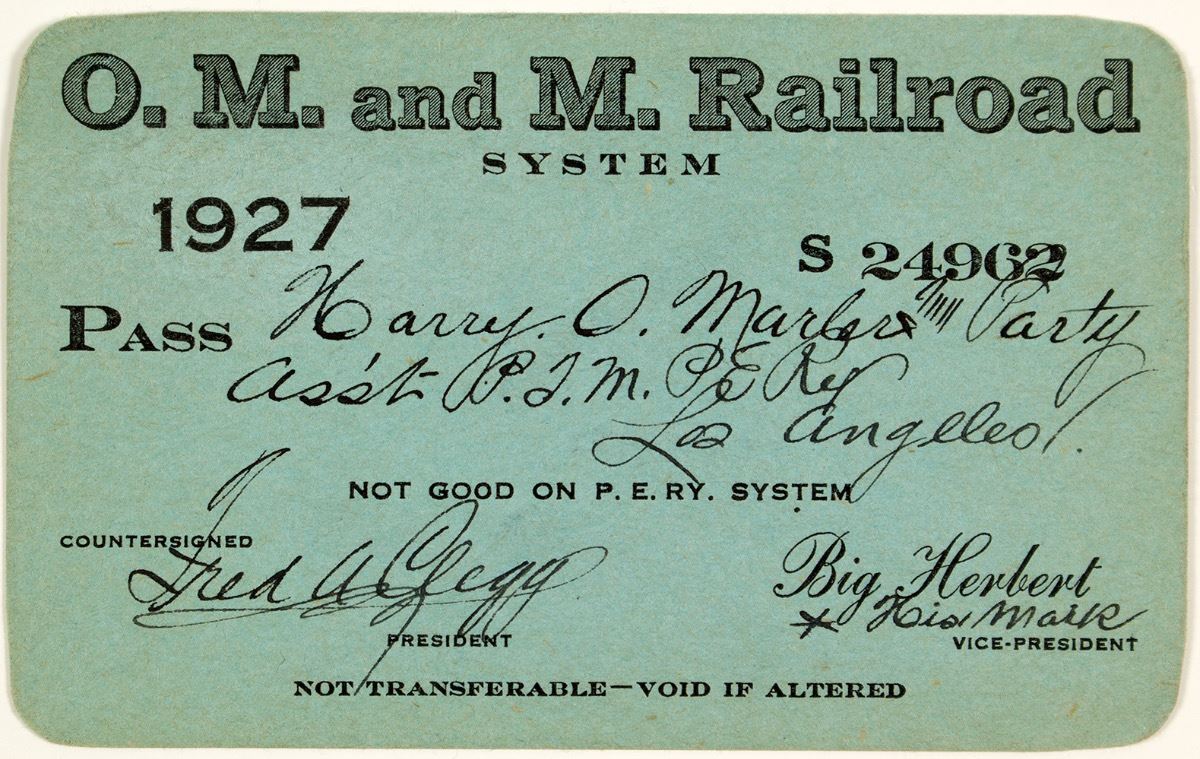 O. M. and M. Railroad
SYSTEM
1927
S 24962
PASS Harry. O. Marler Party
Ass't P.T.M. P E Ry
Los Angeles
NOT GOOD ON P. E. RY. SYSTEM
COUNTERSIGNED
Fred A Clegg
PRESIDENT
Big Herbert
x His Mark
VICE-PRESIDENT
NOT TRANSFERABLE—VOID IF ALTERED